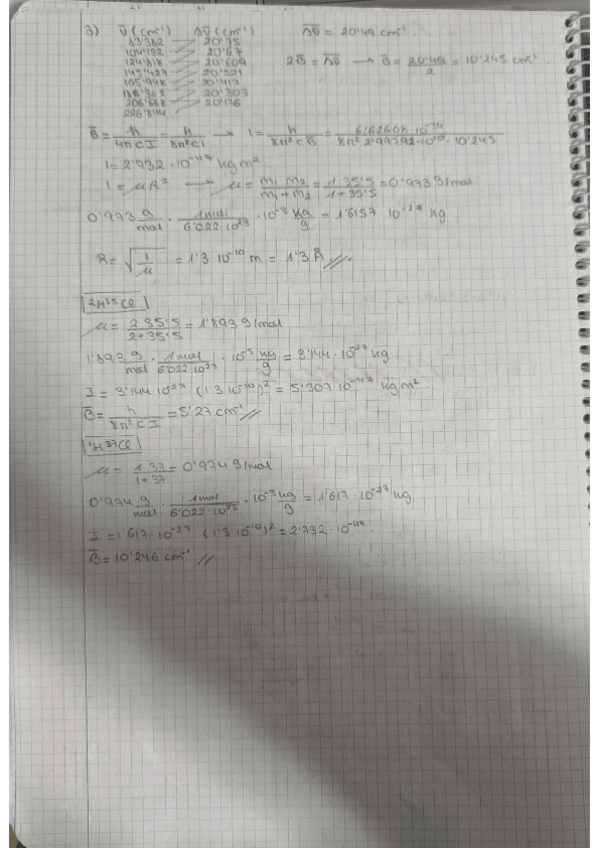 3) ν̄ (cm⁻¹) Δν̄ (cm⁻¹) Δν̄ = 20'49 cm⁻¹.
83'382 20'75
104'132 20'67
124'818 20'609 2B̄ = Δν̄ → B̄ = 20'49/2 = 10'245 cm⁻¹.
145'427 20'521
165'948 20'417
186'365 20'303
206'668 20'176
226'844
B̄ = ħ/4πcI = h/8π²cI → I = h/8π²cB̄ = 6'62608·10⁻³⁴/8π² 2'99792·10¹⁰·10'245
I = 2'732·10⁻⁴⁷ kgm²
I = μR² → μ = m₁ m₂/m₁+m₂ = 1 35'5/1+35'5 = 0'973 g/mol.
0'973 g/mol · 1mol/6'022 10²³ · 10⁻³ kg/g = 1'6157 10⁻²⁷ kg
R = √I/μ = 1'3 10⁻¹⁰ m = 1'3 Å
²H³⁵Cl
μ = 2 35'5/2+35'5 = 1'893 g/mol
1'893 g/mol · 1mol/6'022 10²³ · 10⁻³ kg/g = 3'144·10⁻²⁷ kg
I = 3'144 10⁻²⁷ (1'3 10⁻¹⁰)² = 5'307 10⁻⁴⁷ kgm²
B̄ = h/8π²cI = 5'27 cm⁻¹
¹H³⁷Cl
μ = 1 37/1+37 = 0'974 g/mol
0'974 g/mol · 1mol/6'022 10²³ · 10⁻³ kg/g = 1'617·10⁻²⁷ kg
I = 1'617·10⁻²⁷ (1'3 10⁻¹⁰)² = 2'732·10⁻⁴⁷
B̄ = 10'246 cm⁻¹